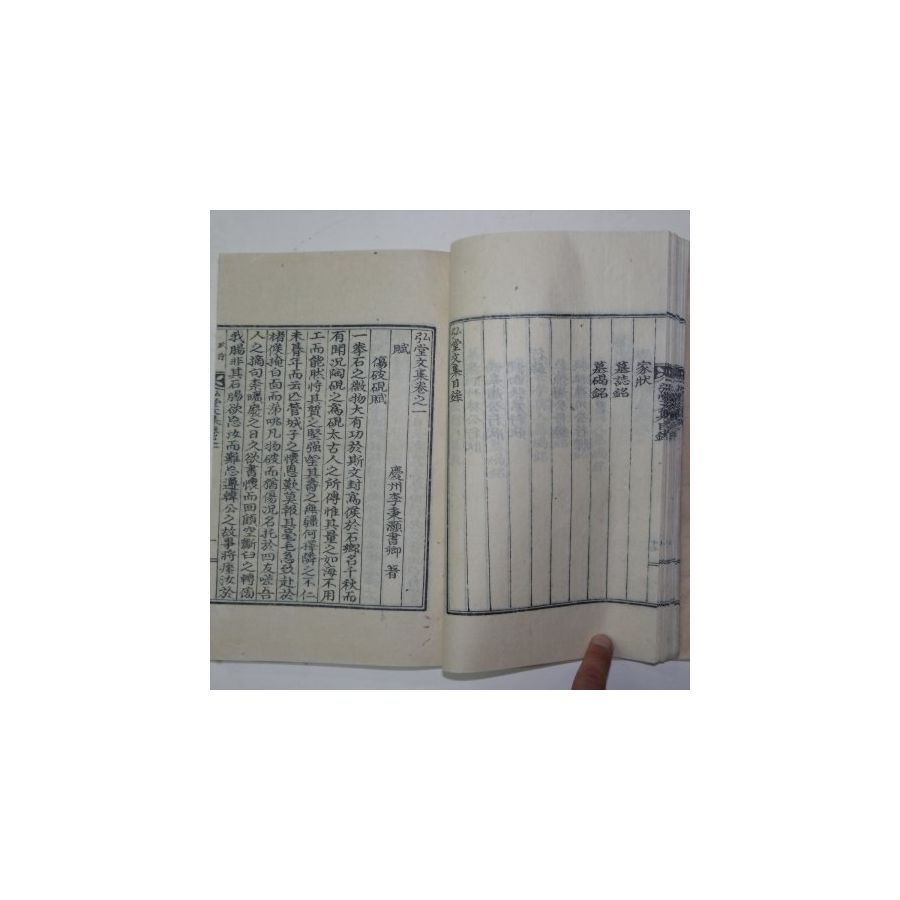 家狀
墓誌銘
墓碣銘
弘堂文集目錄
弘堂文集卷之一
慶州李秉灝書卿 著
賦
傷破硯賦
一拳石之微物大有功於斯文封寫侯於石鄉名千秋而
有聞況陶硯之爲硯太古人之所傳惟其量之如海不用
工而能肰恃其質之堅强望其壽之無疆何
未暮年而云亡管城子之懷恩歎莫報其毫毛
楮侯掩白面而弟咷凡物破而猶傷況名托於四友嗟吾
人之摘句秉曦麼之日久欲書懷而回顧空斷臼之轉
我腸非其石腸欲忘汝而難忘遵韓公之故事將瘞汝於